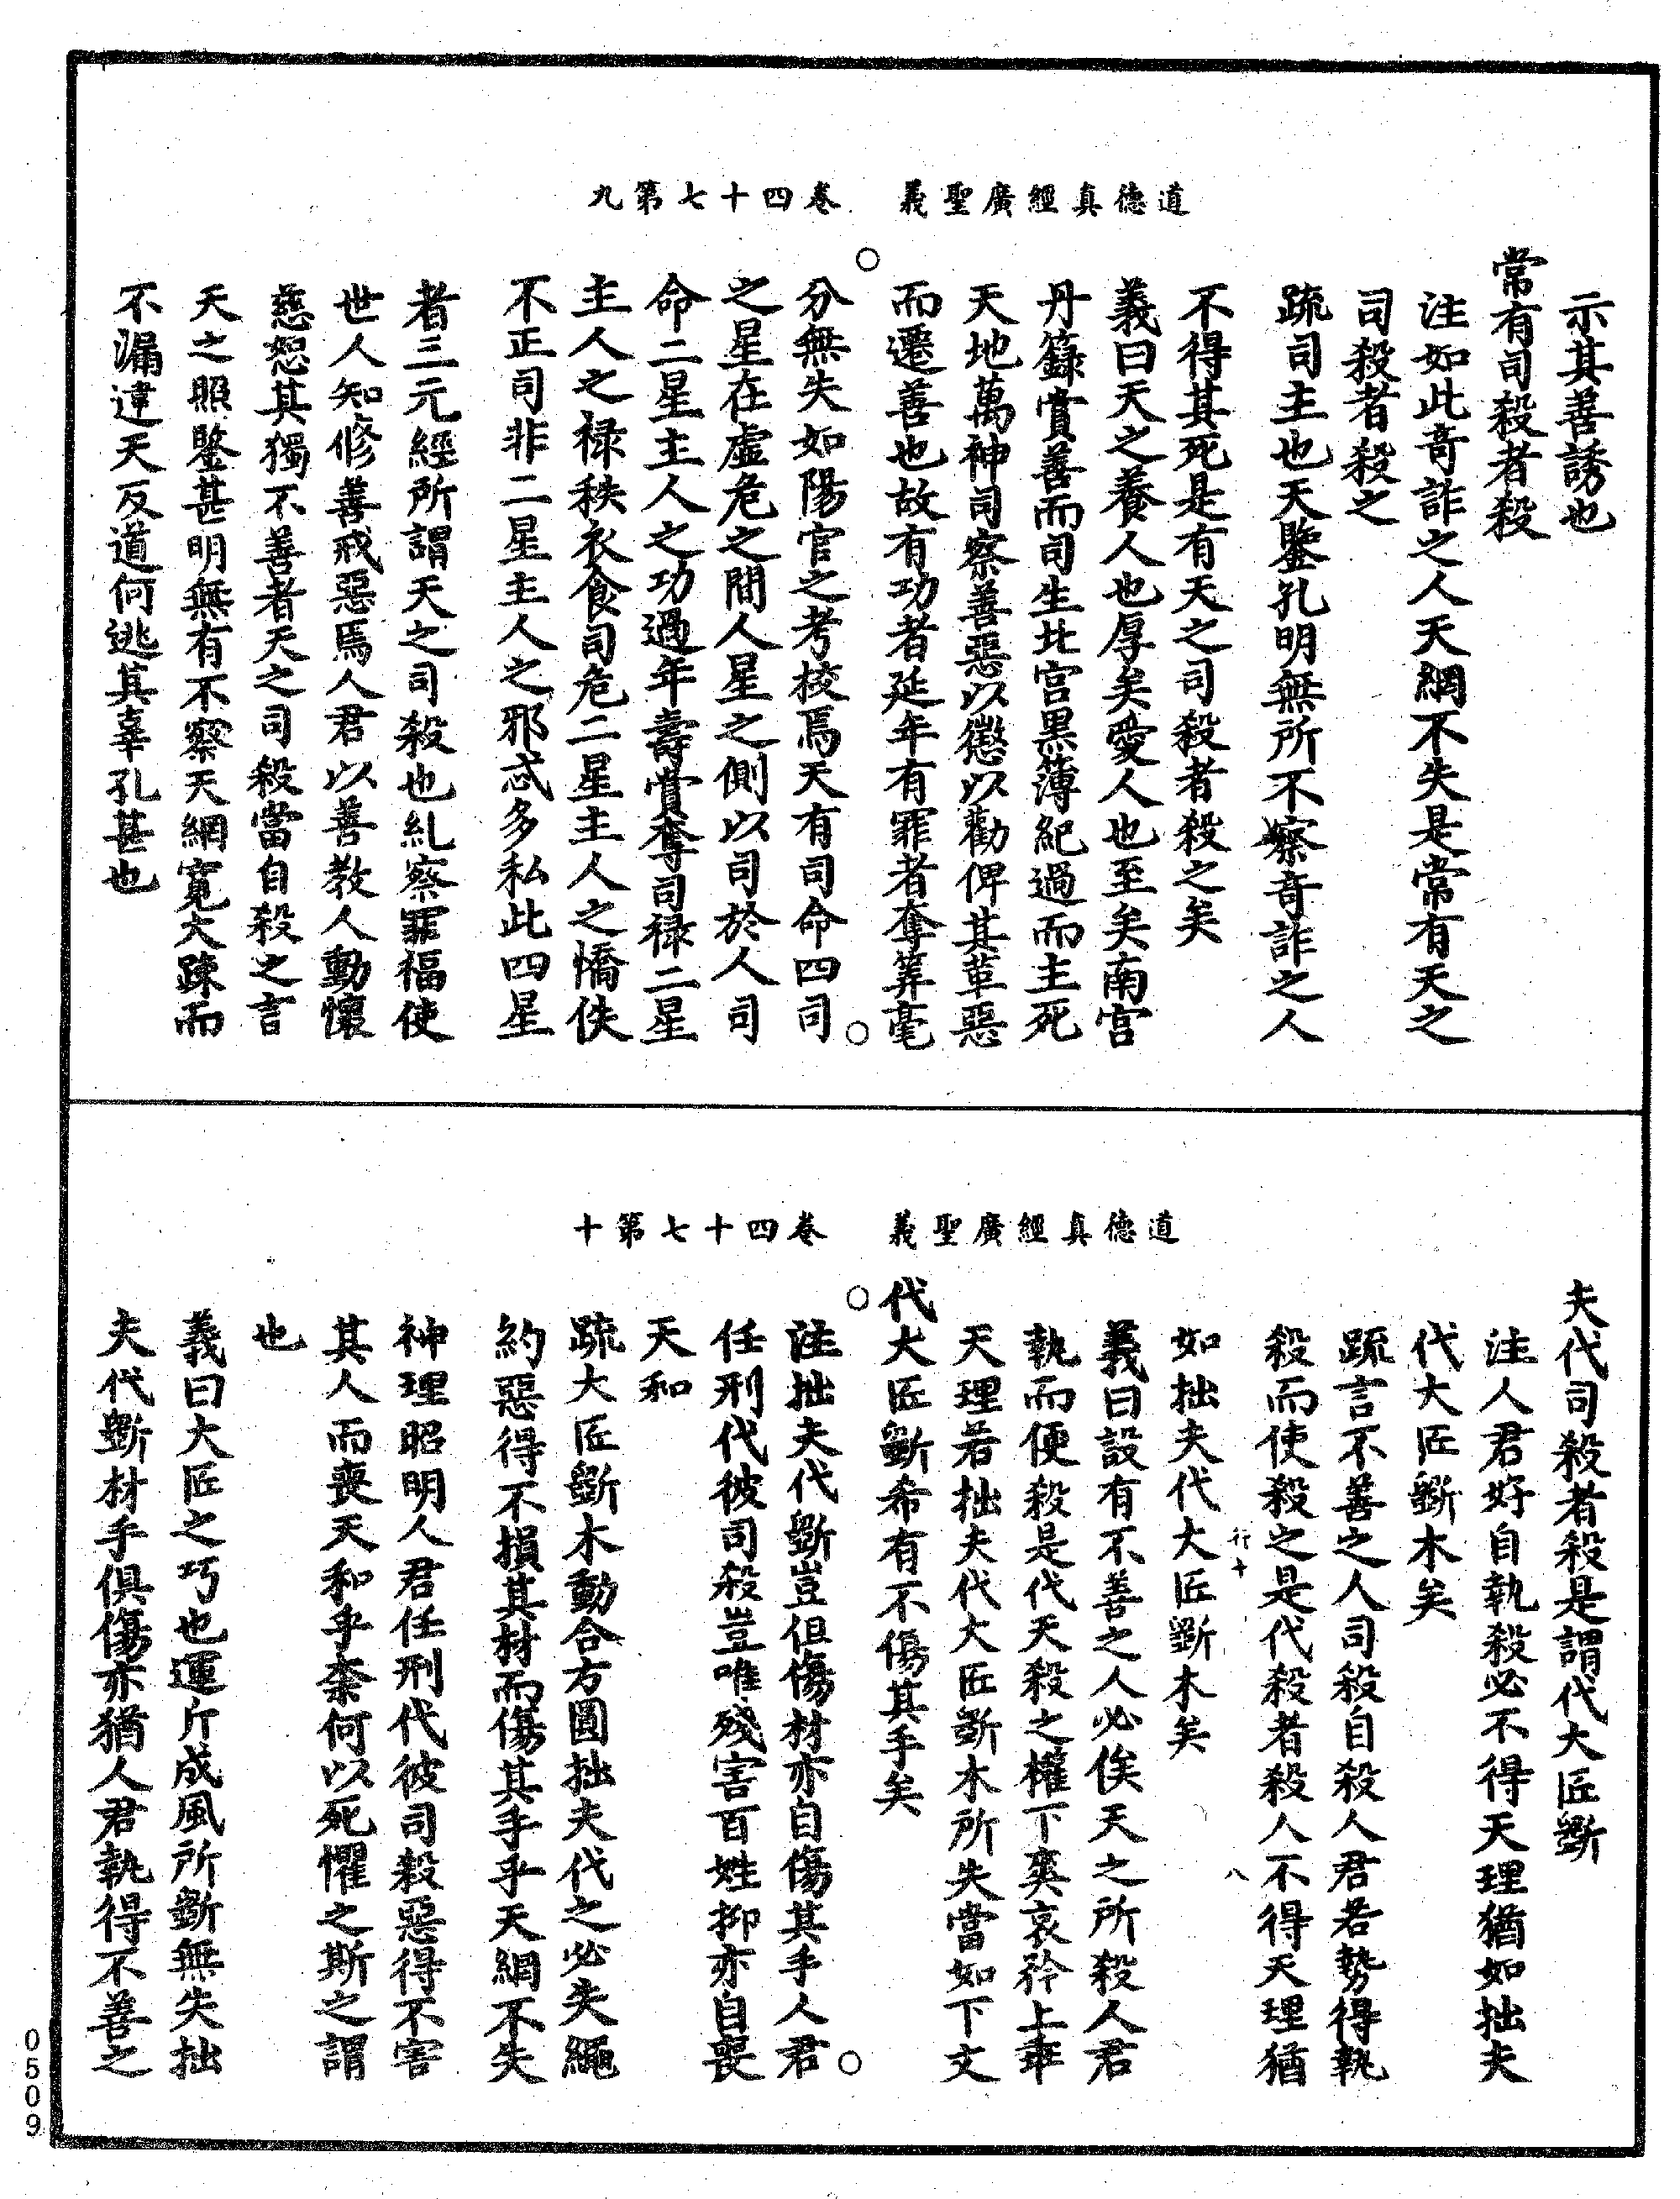 道德真經廣聖義　卷四十七第九
示其善誘也
常有司殺者殺
注如此奇詐之人天網不失是常有天之
司殺者殺之
疏司主也天鑒孔明無所不察奇詐之人
不得其死是有天之司殺者殺之矣
義曰天之養人也厚矣愛人也至矣南宮
丹籙賞善而司生北宮黑簿紀過而主死
天地萬神司察善惡以懲以勸俾其革惡
而遷善也故有功者延年有罪者奪筭毫
分無失如陽官之考校焉天有司命四司
之星在虛危之間人星之側以司於人司
命二星主人之功過年壽賞奪司祿二星
主人之祿秩衣食司危二星主人之憍佚
不正司非二星主人之邪忒多私此四星
者三元經所謂天之司殺也糺察罪福使
世人知修善戒惡焉人君以善教人動懷
慈恕其獨不善者天之司殺當自殺之言
天之照鑒甚明無有不察天網寬大踈而
不漏違天反道何逃其辜孔甚也
道德真經廣聖義　卷四十七第十
夫代司殺者殺是謂代大匠斵
注人君好自執殺必不得天理猶如拙夫
代大匠斵木矣
疏言不善之人司殺自殺人君若勢得執
殺而使殺之是代殺者殺人不得天理猶
行十　八
如拙夫代大匠斵木矣
義曰設有不善之人必俟天之所殺人君
執而便殺是代天殺之權下爽哀矜上乖
天理若拙夫代大匠斵木所失當如下文
代大匠斵希有不傷其手矣
注拙夫代斵豈但傷材亦自傷其手人君
任刑代彼司殺豈唯殘害百姓抑亦自喪
天和
疏大匠斵木動合方圓拙夫代之必失繩
約惡得不損其材而傷其手乎天網不失
神理昭明人君任刑代彼司殺惡得不害
其人而喪天和乎柰何以死懼之斯之謂
也
義曰大匠之巧也運斤成風所斵無失拙
夫代斵材手俱傷亦猶人君執得不善之
0509